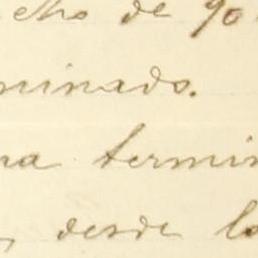 echo de 90
minado.
na termin
, desde lo